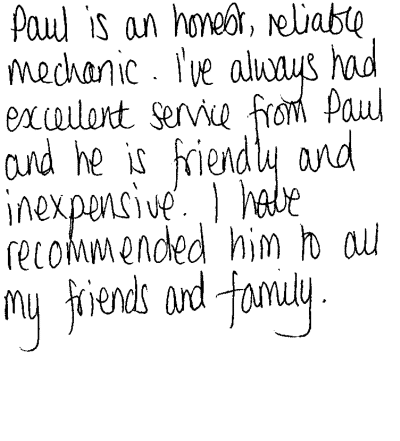 Paul is an honest, reliable
mechanic. I've always had
excellent service from Paul
and he is friendly and
inexpensive. I have
recommended him to all
my friends and family.